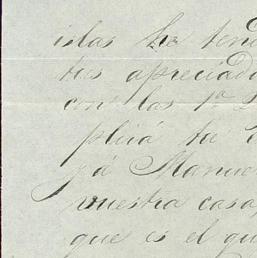 islas he tenid
tus apreciada
con las 1ª 2
plirá tu
yá Manue
vuestra casa,
que es el qu